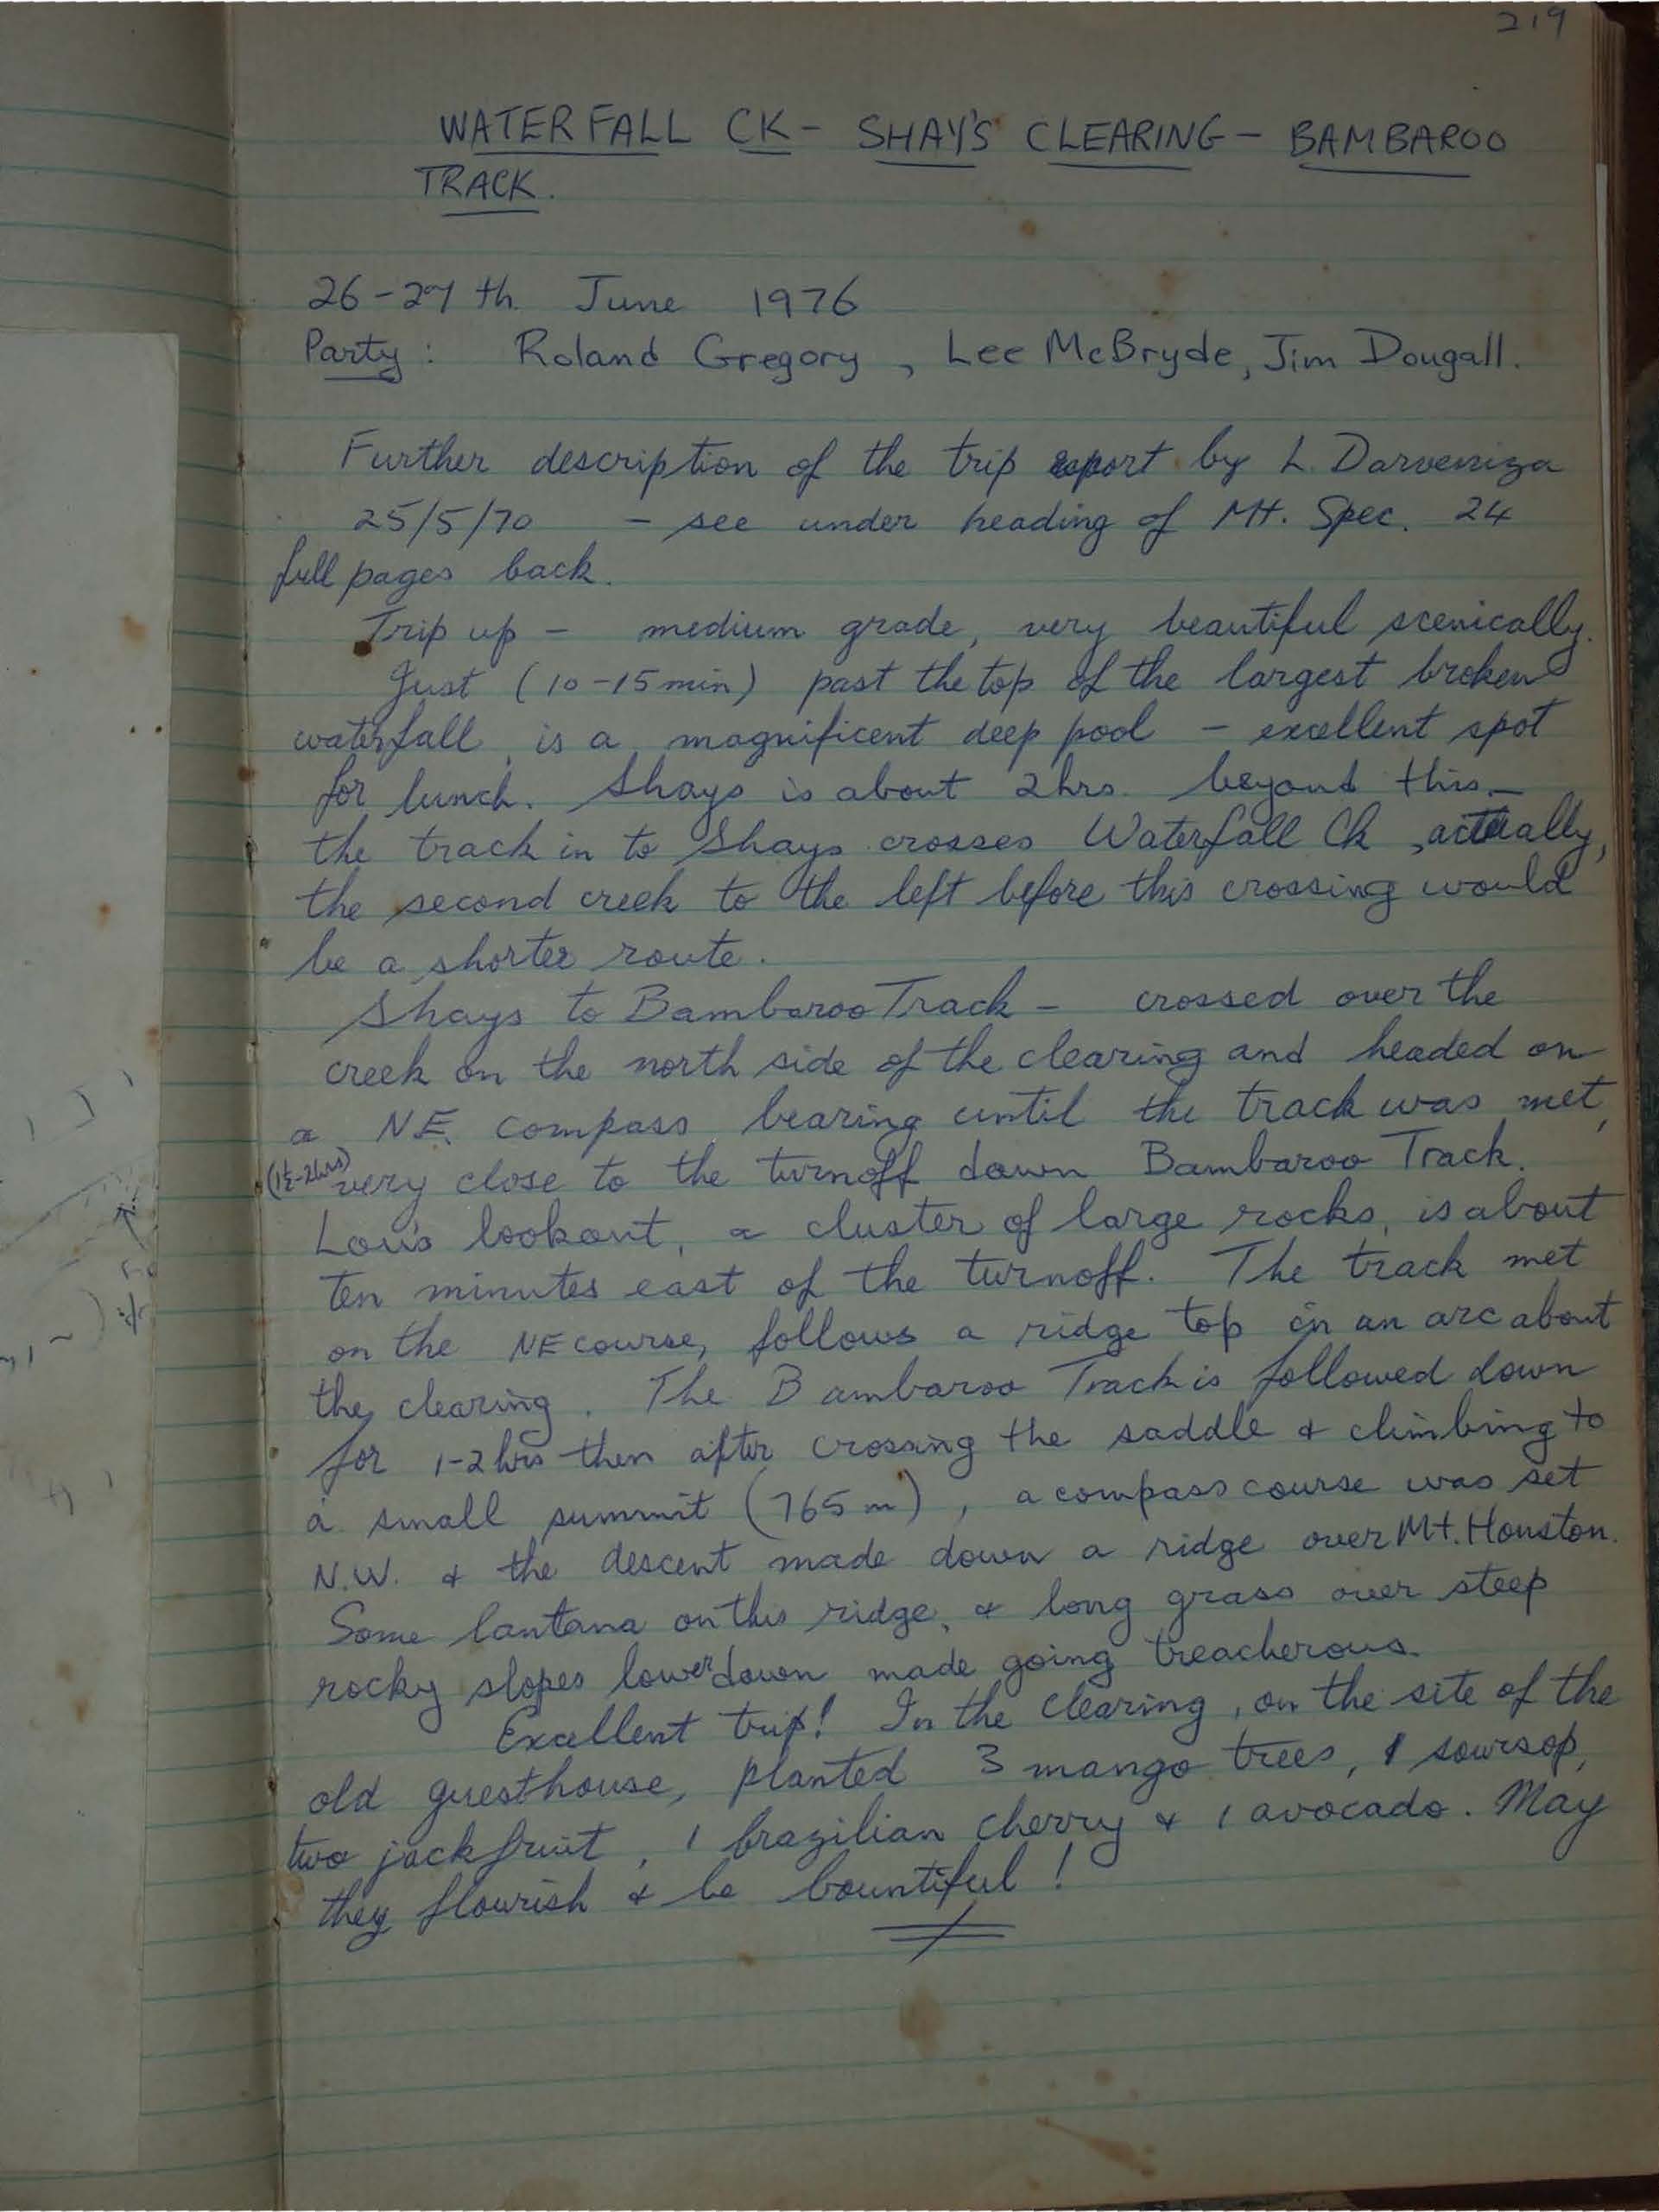 219
WATERFALL CK - SHAY'S CLEARING - BAMBAROO
TRACK.
26-27th June 1976
Party: Roland Gregory, Lee McBryde, Jim Dougall.
Further description of the trip report by L. Darveniza
25/5/70 - see under heading of Mt. Spec. 24
full pages back.
Trip up - medium grade, very beautiful scenically.
Just (10-15min) past the top of the largest broken
waterfall, is a magnificent deep pool - excellent spot
for lunch. Shays is about 2hrs. beyond this -
the track in to Shays crosses Waterfall Ck, actually,
the second creek to the left before this crossing would
be a shorter route.
Shays to Bambaroo Track - crossed over the
creek on the north side of the clearing and headed on
a N.E. compass bearing until the track was met,
(1½-2hrs) very close to the turnoff down Bambaroo Track.
Lou's lookout, a cluster of large rocks, is about
ten minutes east of the turnoff. The track met
on the NE course, follows a ridge top in an arc about
the clearing. The Bambaroo Track is followed down
for 1-2hrs then after crossing the saddle & climbing to
a small summit (765m), a compass course was set
N.W. & the descent made down a ridge over Mt. Houston.
Some lantana on this ridge, & long grass over steep
rocky slopes lower down made going treacherous.
Excellent trip! In the clearing, on the site of the
old guesthouse, planted 3 mango trees, 1 soursop,
two jackfruit, 1 brazilian cherry & 1 avocado. May
they flourish & be bountiful!